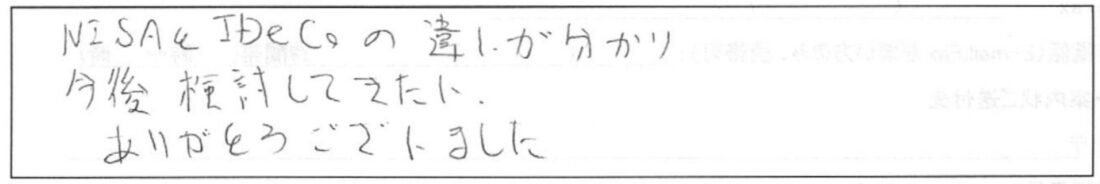 NISAと IDeCoの違いが分かり
今後 検討してきたい.
ありがとうございました